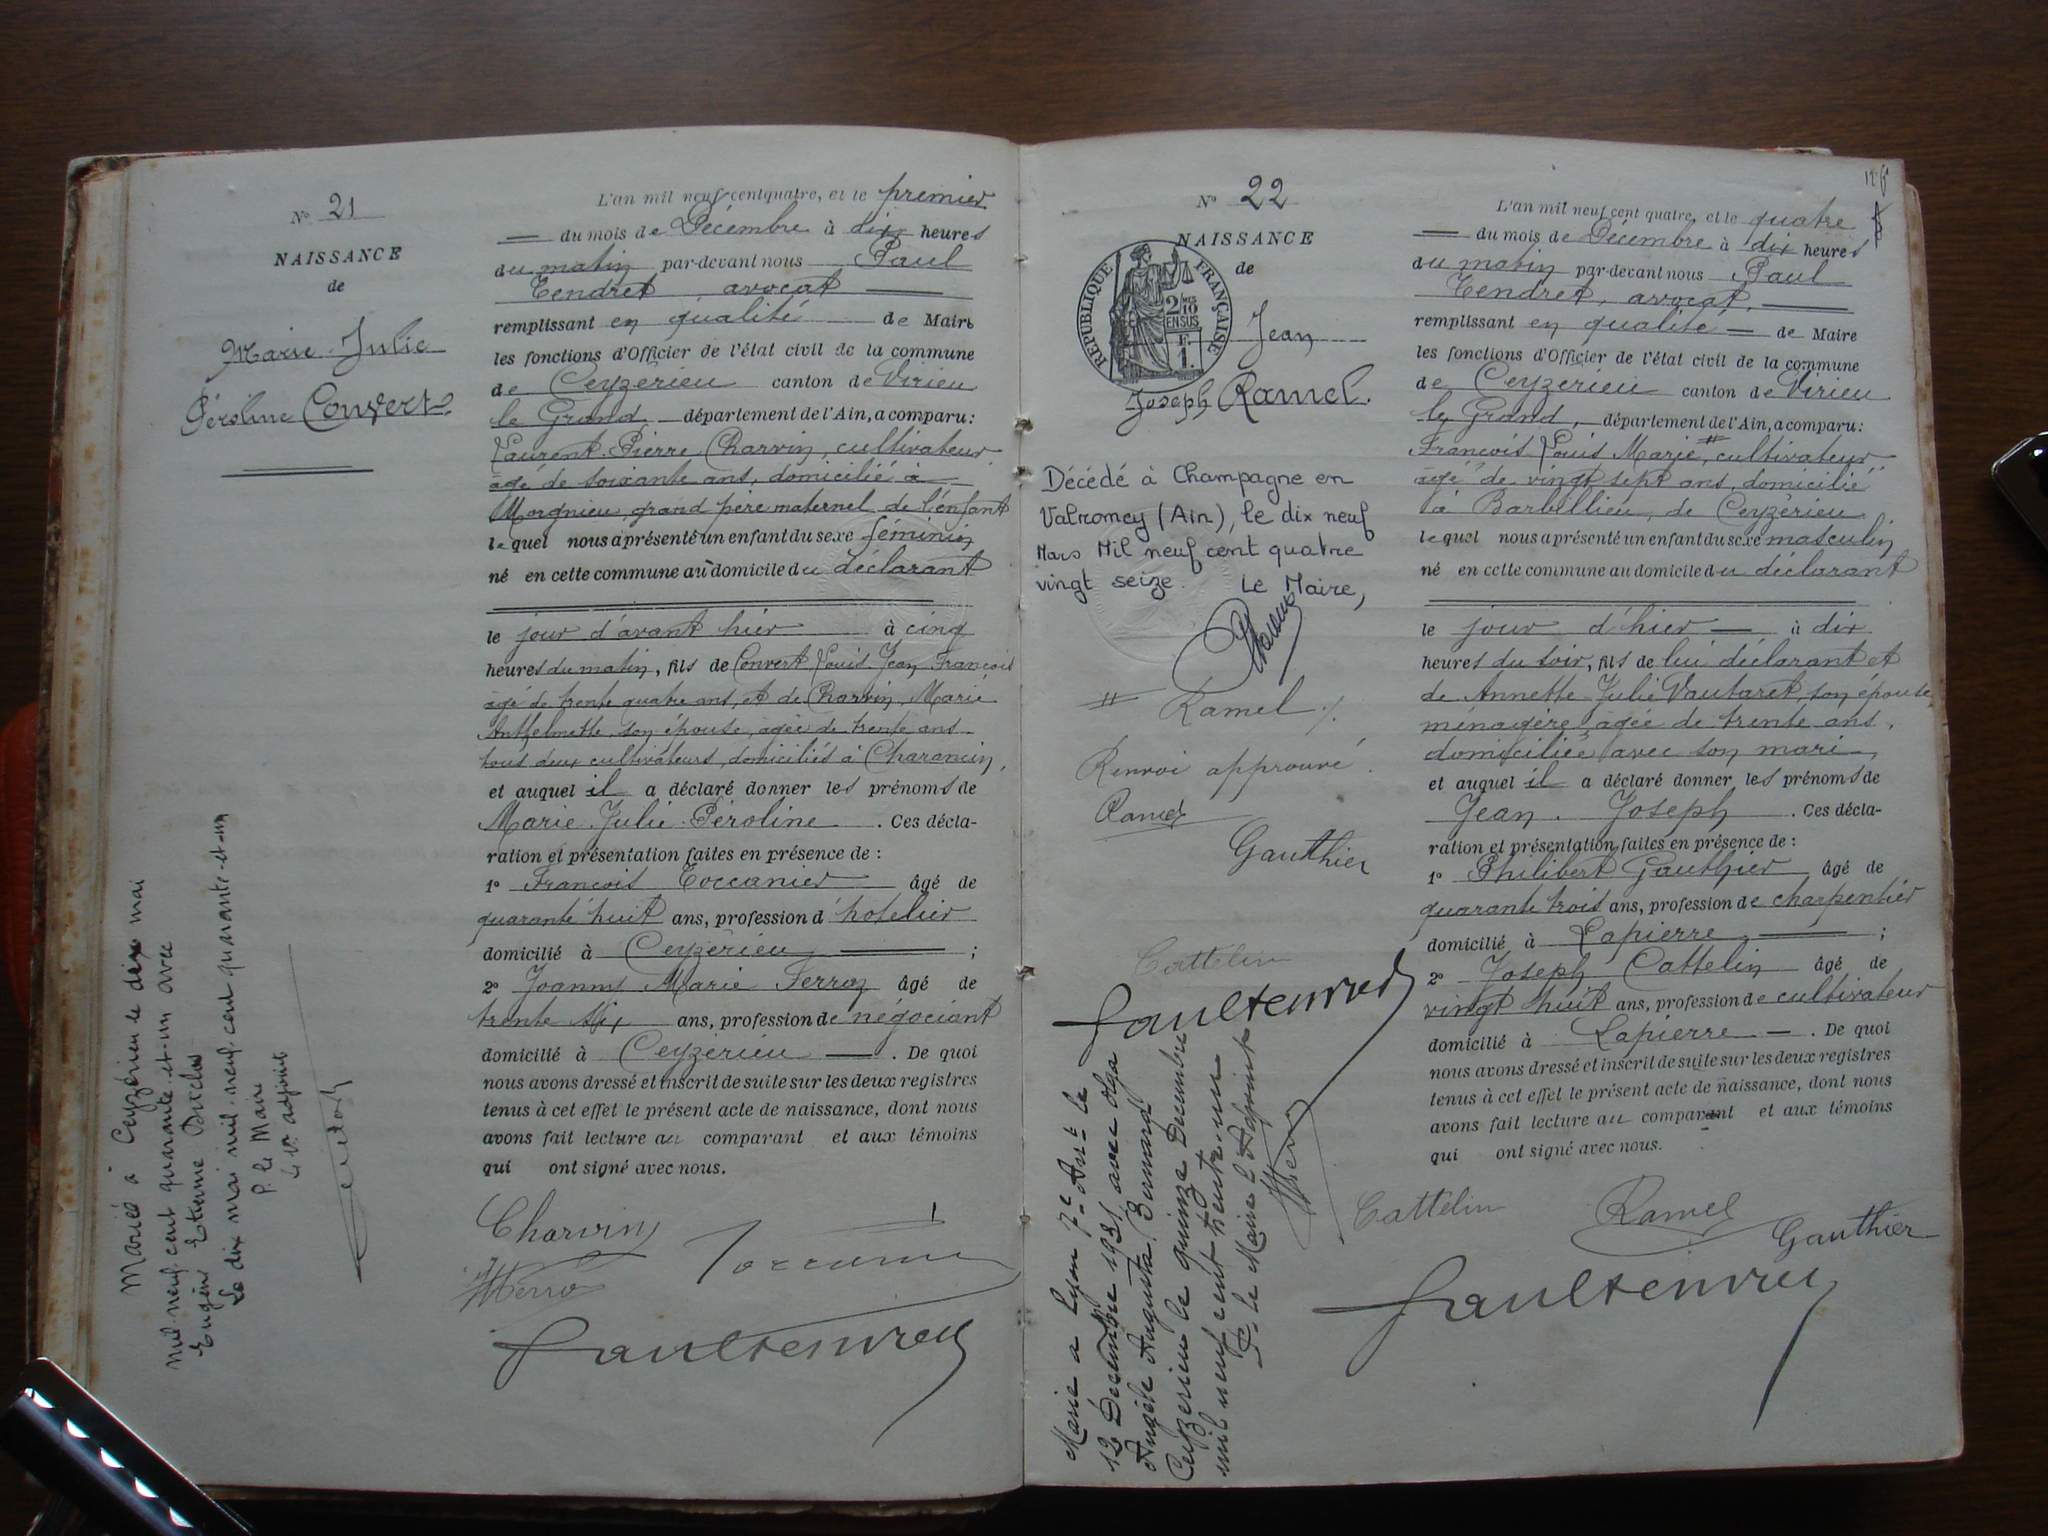 N° 21
NAISSANCE
de
Marie Julie
Péroline Convert
L'an mil neuf cent quatre, et le premier
du mois de Décembre à dix heures
du matin par-devant nous Paul
Tendret, avocat
remplissant en qualité de Maire
les fonctions d'Officier de l'état civil de la commune
de Ceyzérieu canton de Virieu
le Grand département de l'Ain, a comparu:
Laurent Pierre Charvin, cultivateur
âgé de soixante ans, domicilié à
Morgnieu, grand père maternel de l'enfant
lequel nous a présenté un enfant du sexe féminin
né en cette commune au domicile du déclarant
le jour d'avant hier à cinq
heures du matin, fils de Convert Louis Jean François
âgé de trente quatre ans, et de Charvin Marie
Anthelmette son épouse, âgée de trente ans
tous deux cultivateurs, domiciliés à Charancin,
et auquel il a déclaré donner les prénoms de
Marie Julie Péroline. Ces décla-
ration et présentation faites en présence de :
1° François Toccanier âgé de
quarante huit ans, profession d'hotelier
domicilié à Ceyzérieu ;
2° Joanny Marie Ferroz âgé de
trente six ans, profession de négociant
domicilié à Ceyzérieu. De quoi
nous avons dressé et inscrit de suite sur les deux registres
tenus à cet effet le présent acte de naissance, dont nous
avons fait lecture au comparant et aux témoins
qui ont signé avec nous.
Charvin
Marié à Ceyzérieu le dix mai
mil neuf cent quarante-et-un avec
Eugène Etienne
Le dix mai mil neuf cent quarante-et-un
P. le Maire
Le 1er adjoint
N° 22
NAISSANCE
de
RÉPUBLIQUE FRANÇAISE
2/10 EN SUS
1 F.
Jean
Joseph Ramel.
Décédé à Champagne en
Valromey (Ain), le dix neuf
Mars Mil neuf cent quatre
vingt seize. Le Maire,
# Ramel ./.
Renvoi approuvé.
Ramel
Gauthier
Cattelin
Marié à Lyon 7e Arrt le
12 Décembre 1931 avec Olga
Angèle Augusta Bernard
Ceyzérieu le quinze Décembre
mil neuf cent trente un
P. le Maire l'Adjoint
L'an mil neuf cent quatre, et le quatre
du mois de Décembre à dix heures
du matin par-devant nous Paul
Tendret, avocat,
remplissant en qualité de Maire
les fonctions d'Officier de l'état civil de la commune
de Ceyzérieu canton de Virieu
le Grand, département de l'Ain, a comparu:
François Louis Marie #, cultivateur
âgé de vingt sept ans, domicilié
à Barbillieu, de Ceyzérieu
lequel nous a présenté un enfant du sexe masculin
né en cette commune au domicile du déclarant
le jour d'hier à dix
heures du soir, fils de lui déclarant et
de Annette Julie Vautaret, son épouse
ménagère âgée de trente ans,
domiciliée avec son mari
et auquel il a déclaré donner les prénoms de
Jean Joseph. Ces décla-
ration et présentation faites en présence de :
1° Philibert Gauthier âgé de
quarante trois ans, profession de charpentier
domicilié à Lapierre ;
2° Joseph Cattelin âgé de
vingt huit ans, profession de cultivateur
domicilié à Lapierre. De quoi
nous avons dressé et inscrit de suite sur les deux registres
tenus à cet effet le présent acte de naissance, dont nous
avons fait lecture au comparant et aux témoins
qui ont signé avec nous.
Cattelin Ramel Gauthier